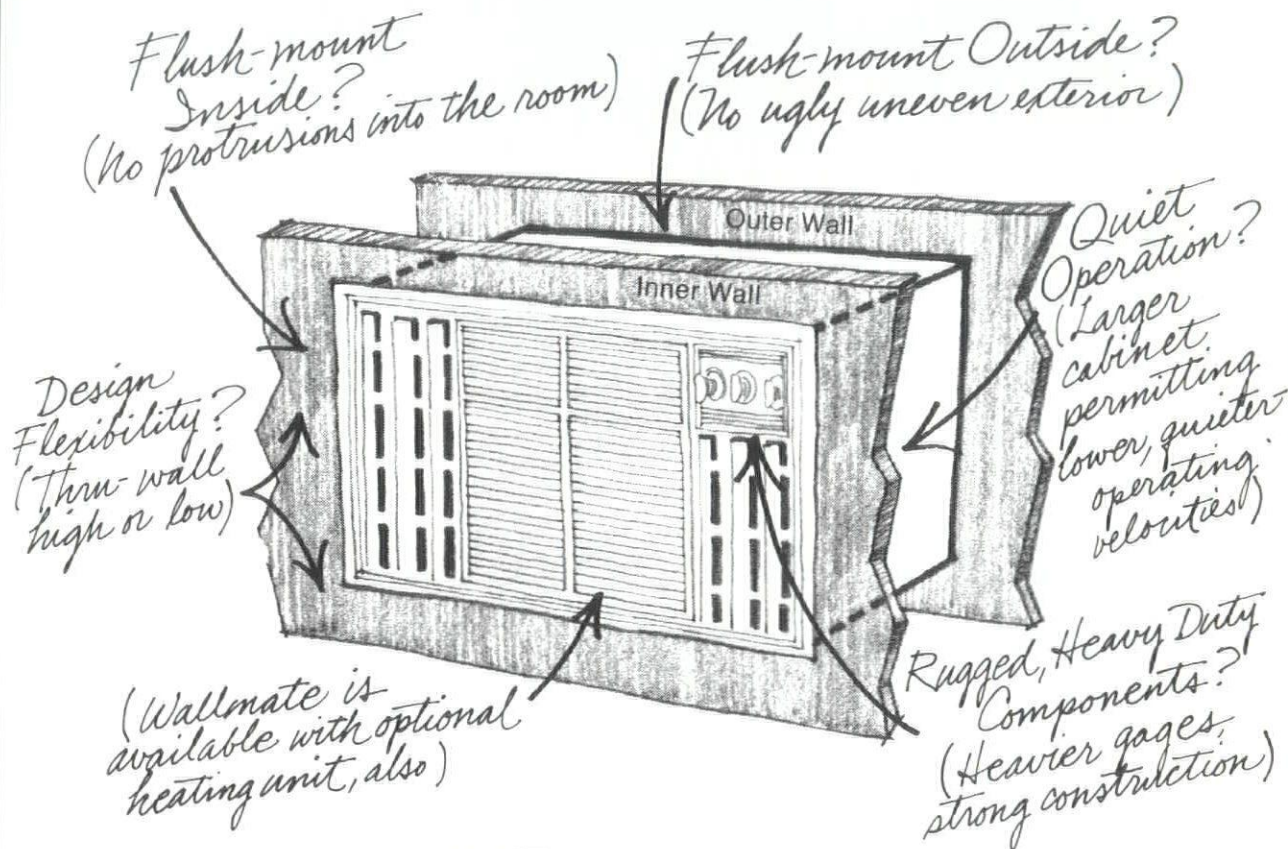 Flush-mount
Inside?
(No protrusions into the room)
Flush-mount Outside?
(No ugly uneven exterior)
Outer Wall
Inner Wall
Quiet
Operation?
(Larger
cabinet
permitting
lower, quieter
operating
velocities)
Design
Flexibility?
(Thru-wall
high or low)
(Wallmate is
available with optional
heating unit, also)
Rugged, Heavy Duty
Components?
(Heavier gages,
strong construction)